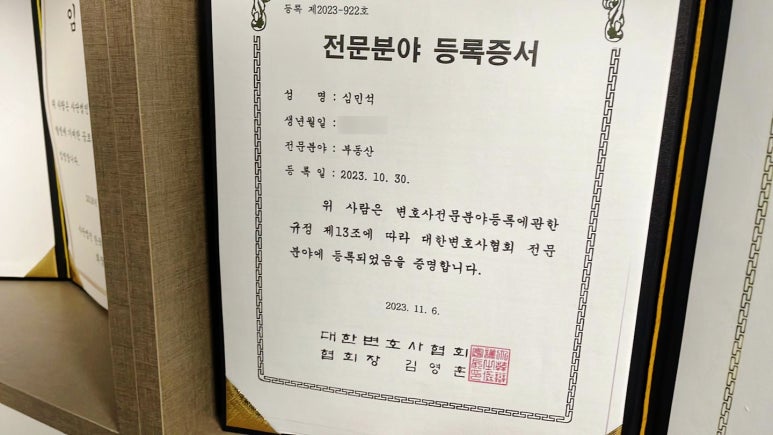 등록 제2023-922호
전문분야 등록증서
성 명 : 심민석
생년월일 :
전문분야 : 부동산
등 록 일 : 2023. 10. 30.
위 사람은 변호사전문분야등록에관한
규정 제13조에 따라 대한변호사협회 전문
분야에 등록되었음을 증명합니다.
2023. 11. 6.
대한변호사협회
협회장 김영훈
임